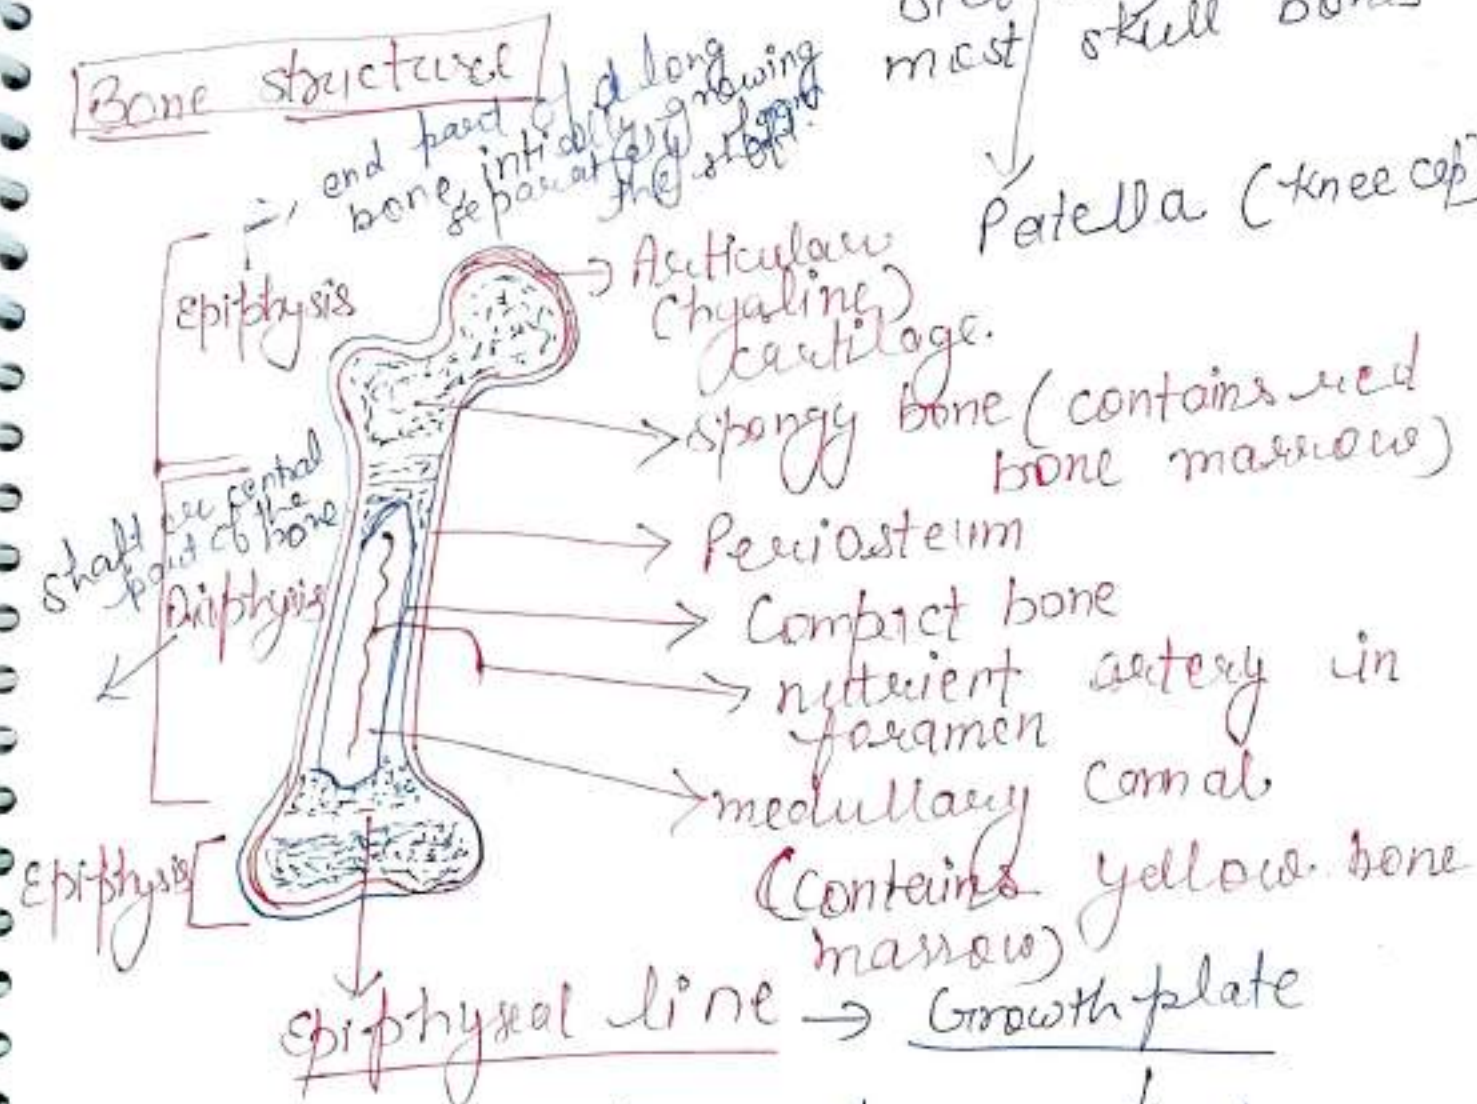 Bone structure
end part of a long
bone, intially growing
separately from
the shaft.
most skull bones
Patella (knee cap)
Epiphysis
Articular
(hyaline)
cartilage.
spongy bone (contains red
bone marrow)
shaft or central
part of the
bone
Periosteum
Diaphysis
Compact bone
nutrient artery in
foramen
medullary cannal
(contains yellow bone
marrow)
Epiphysis
Epiphyseal line → Growth plate